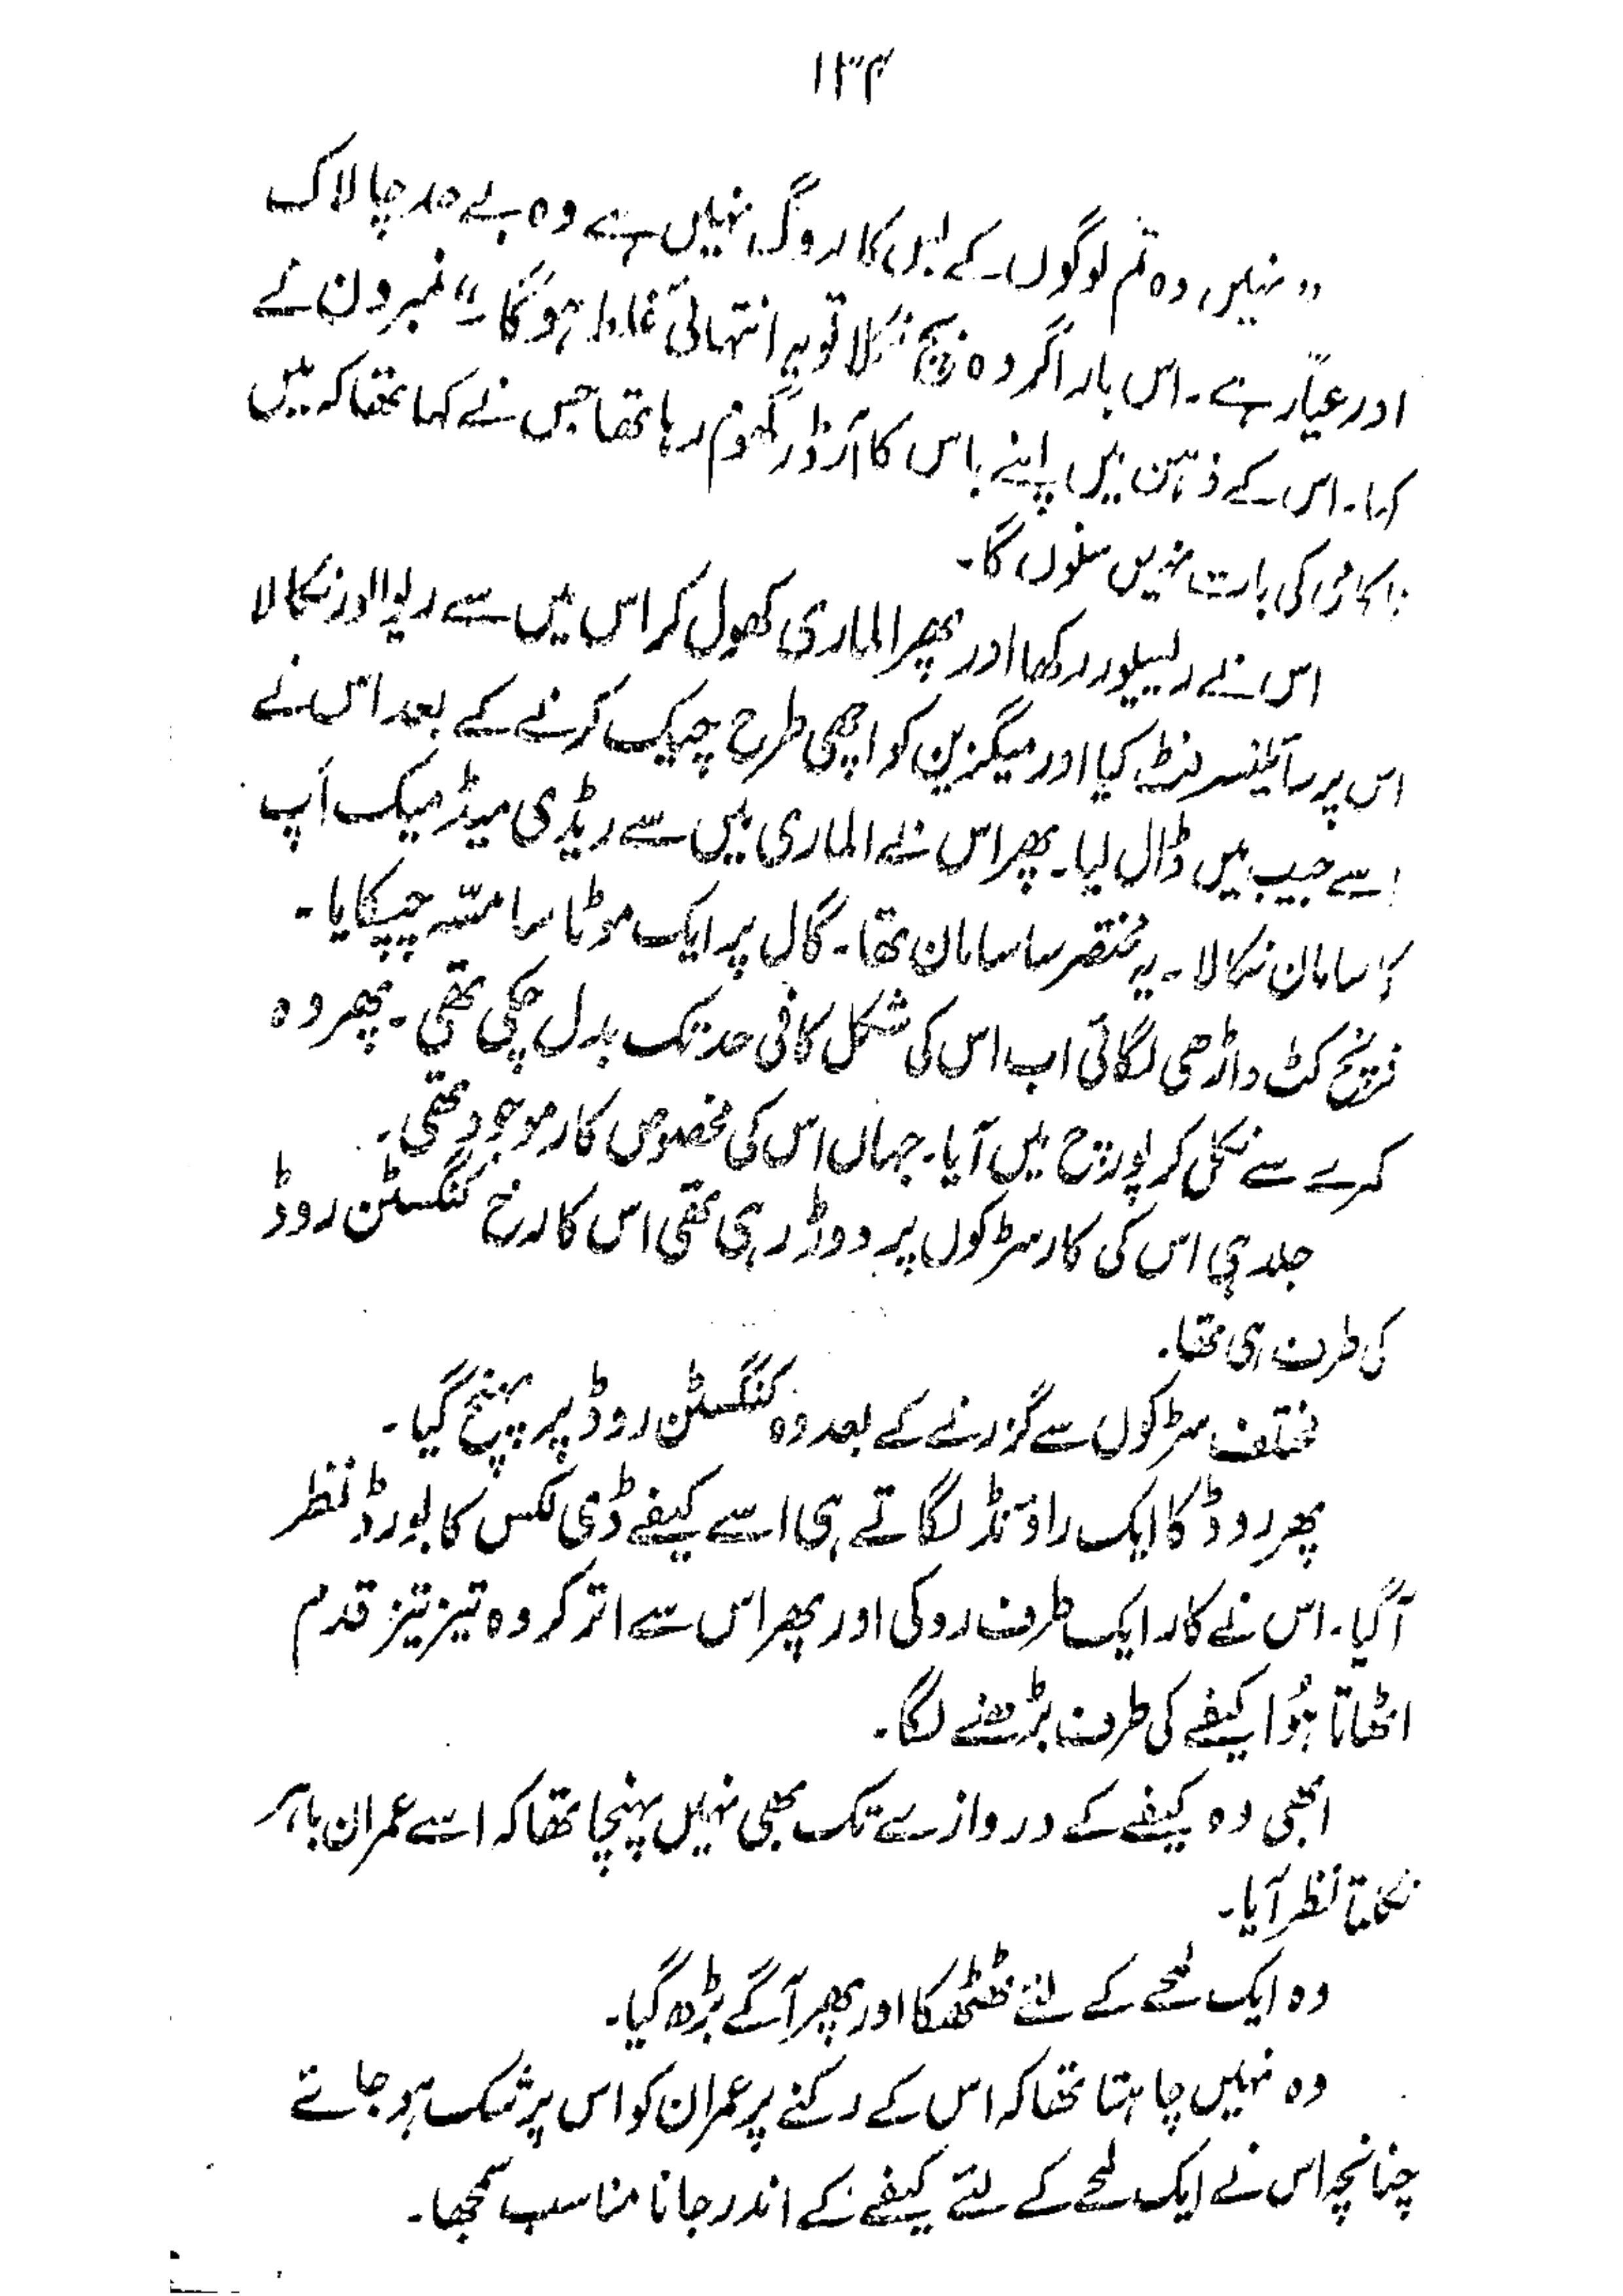 ۱۳۴
"نہیں وہ تم لوگوں کے بس کا روگ نہیں ہے وہ بے حد چالاک
اور عیّار ہے۔ اس بار اگر وہ بچ نکلا تو یہ انتہائی غلط ہوگا۔" نمبر ون نے
کہا۔ اس کے ذہن میں اپنے باس کا آرڈر گھوم رہا تھا جس نے کہا تھا کہ میں
ناکامی کی بات نہیں سنوں گا۔
اس نے ریسیور رکھا اور پھر الماری کھول کر اس میں سے ریوالور نکالا
اس پر سائیلنسر فٹ کیا اور میگزین کو اچھی طرح چیک کرنے کے بعد اس نے
اسے جیب میں ڈال لیا۔ پھر اس نے الماری میں سے ریڈی میڈ میک اَپ
کا سامان نکالا۔ یہ مختصر سا سامان تھا۔ گال پر ایک موٹا سا مسّہ چپکایا۔
فرنچ کٹ داڑھی لگائی اب اس کی شکل کافی حد تک بدل چکی تھی۔ پھر وہ
کمرے سے نکل کر پورچ میں آیا۔ جہاں اس کی مخصوص کار موجود تھی۔
جلد ہی اس کی کار سڑکوں پر دوڑ رہی تھی اس کا رخ کنگسٹن روڈ
کی طرف ہی تھا۔
مختلف سڑکوں سے گزرنے کے بعد وہ کنگسٹن روڈ پر پہنچ گیا۔
پھر روڈ کا ایک راؤنڈ لگاتے ہی اسے کیفے ڈی لکس کا بورڈ نظر
آگیا۔ اس نے کار ایک طرف روکی اور پھر اس سے اتر کر وہ تیز تیز قدم
اٹھاتا ہُوا کیفے کی طرف بڑھنے لگا۔
ابھی وہ کیفے کے دروازے تک بھی نہیں پہنچا تھا کہ اسے عمران باہر
نکلتا نظر آیا۔
وہ ایک لمحے کے لئے ٹھٹھکا اور پھر آگے بڑھ گیا۔
وہ نہیں چاہتا تھا کہ اس کے رکنے پر عمران کو اس پر شک ہو جائے
چنانچہ اس نے ایک لمحے کے لئے کیفے کے اندر جانا مناسب سمجھا۔